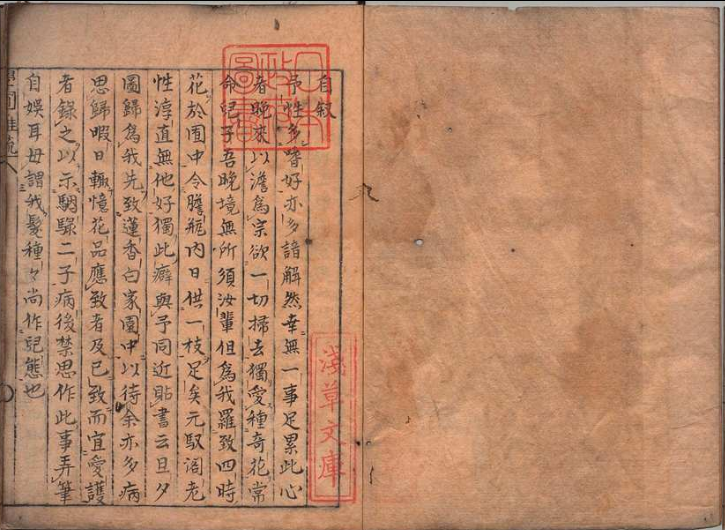 自叙
予性多嗜好亦多諳解然幸無一事足累此心
者晩來以澹爲宗欲一切掃去獨愛種奇花常
命兒子吾晩境無所須汝輩但爲我羅致四時
花於圃中令膽瓶内日供一枝足矣元馭閣老
性淳直無他好獨此癖與予同近貽書云旦夕
圖歸爲我先致蓮香白家園中以待余亦多病
思歸暇日輙憶花品應致者及已致而宜愛護
者錄之以示騆騄二子病後禁思作此事弄筆
自娯耳毋謂我髮種々尚作兒態也
日本
政府
圖書
淺草文庫